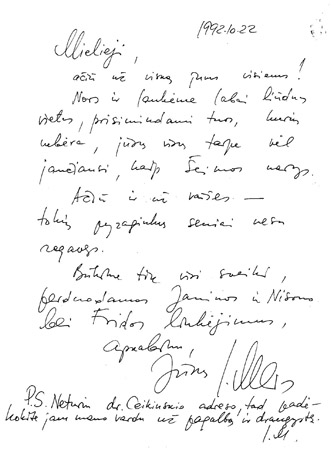 1992.10.22
Mielieji,
ačiū už viską jums visiems!
Nors ir lankėme labai liūdnas
vietas, prisimindami tuos, kurių
nebėra, jūsų visų tarpe vėl
jaučiausi, kaip šeimos narys.
Ačiū ir už vaišes —
tokių pyragiukų seniai nesu
ragavęs.
Būkime tik visi sveiki,
perduodamas Janinos ir Nisono
bei Fridos linkėjimus,
apkabinu,
Jūsų
P.S. Neturiu dr. Ceikinskio adreso, tad padė-
kokite jam mano vardu už pagalbą ir draugystę.
I.M.